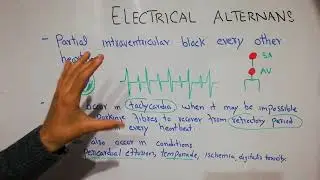 ELECTRICAL ALTERNANS
- Partial intraventricular block every other
SA
AV
occur in tachycardia when it may be impossible
Purkinje fibres to recover from refractory period
every heartbeat
also occur in conditions
pericardial effusion, temponade, ischemia, digitalis toxicity